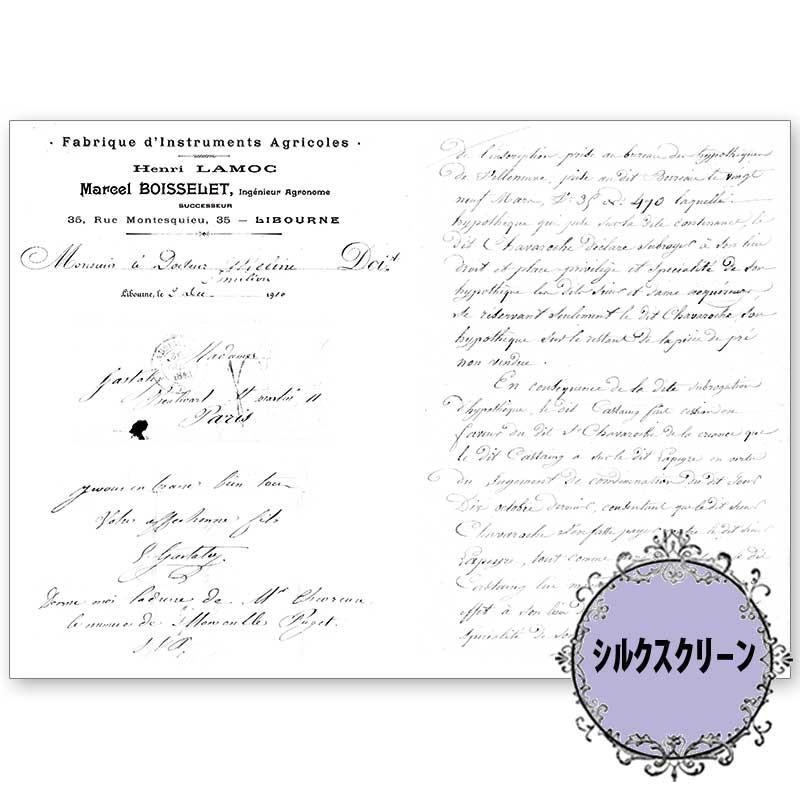 · Fabrique d'Instruments Agricoles ·
Henri LAMOC
Marcel BOISSELET, Ingénieur Agronome
SUCCESSEUR
35, Rue Montesquieu, 35 — LIBOURNE
Monsieur le Docteur Doit
Libourne, le 3 1910
Madame
Gastaley
11
Paris
bien
Votre affectionné fils
Gastaley
Donne moi de Mr Chevreau
le numéro de Puget.
S.V.P.
De l'inscription prise au bureau des hypothèques
de Villeneuve, prise au dit Bureau le vingt
neuf Mars, No 35 No 470 laquelle
hypothèque qui pèse sur la dite contenance le
dit Chavaroche déclare subroger à son lieu
droit et place privilège et spécialité de son
hypothèque les dits Sieur et Dame acquéreurs
se réservant seulement le dit Chavaroche son
hypothèque sur le restant de la pièce de pré
non vendue.
En conséquence de la dite subrogation
d'hypothèque, le dit Castaing fait cession en
faveur du dit Sr Chavaroche de la créance que
le dit Castaing a sur le dit Lapeyre en vertu
du Jugement de condamnation du dit jour
Dix octobre dernier, consentant que le dit sieur
Chavaroche s'en fasse payer le dit sieur
Lapeyre, tout comme le dit
Castaing lui
effet à son lieu
spécialité de son
シルクスクリーン